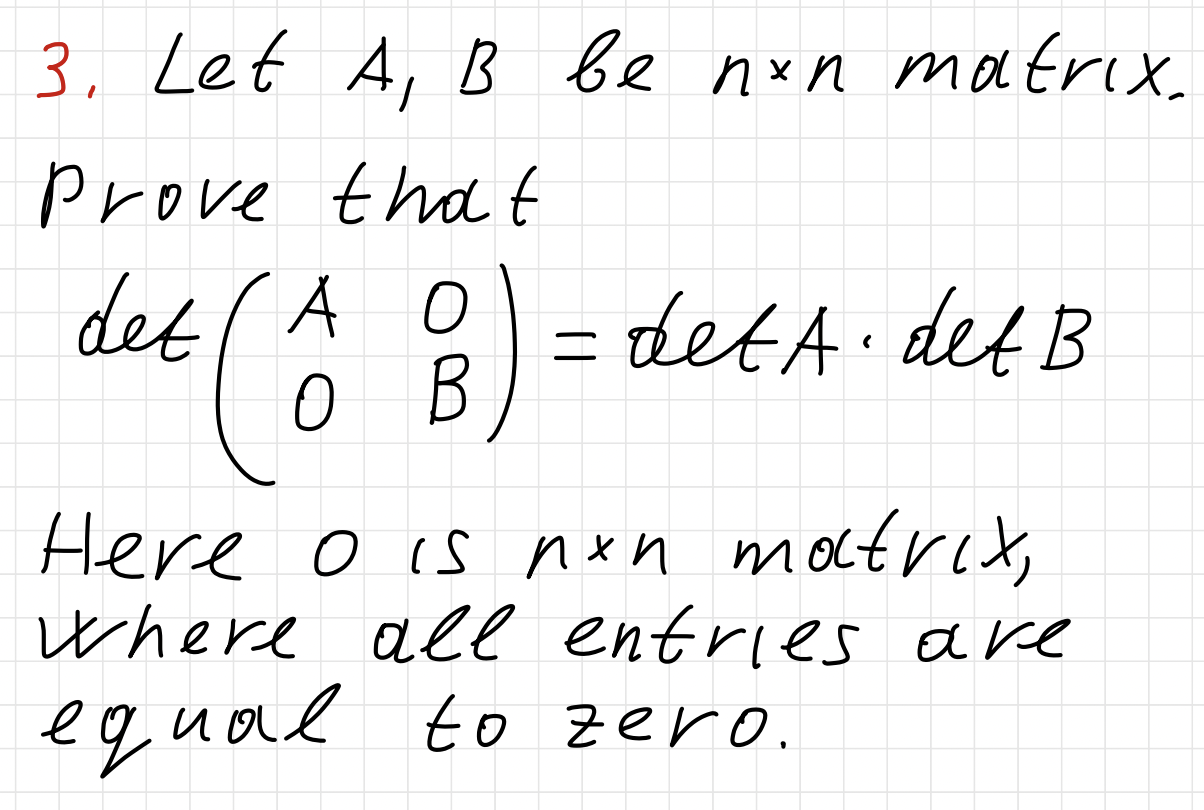 3. Let A, B be n×n matrix.
Prove that
det(A 0
0 B) = det A · det B
Here 0 is n×n matrix,
where all entries are
equal to zero.